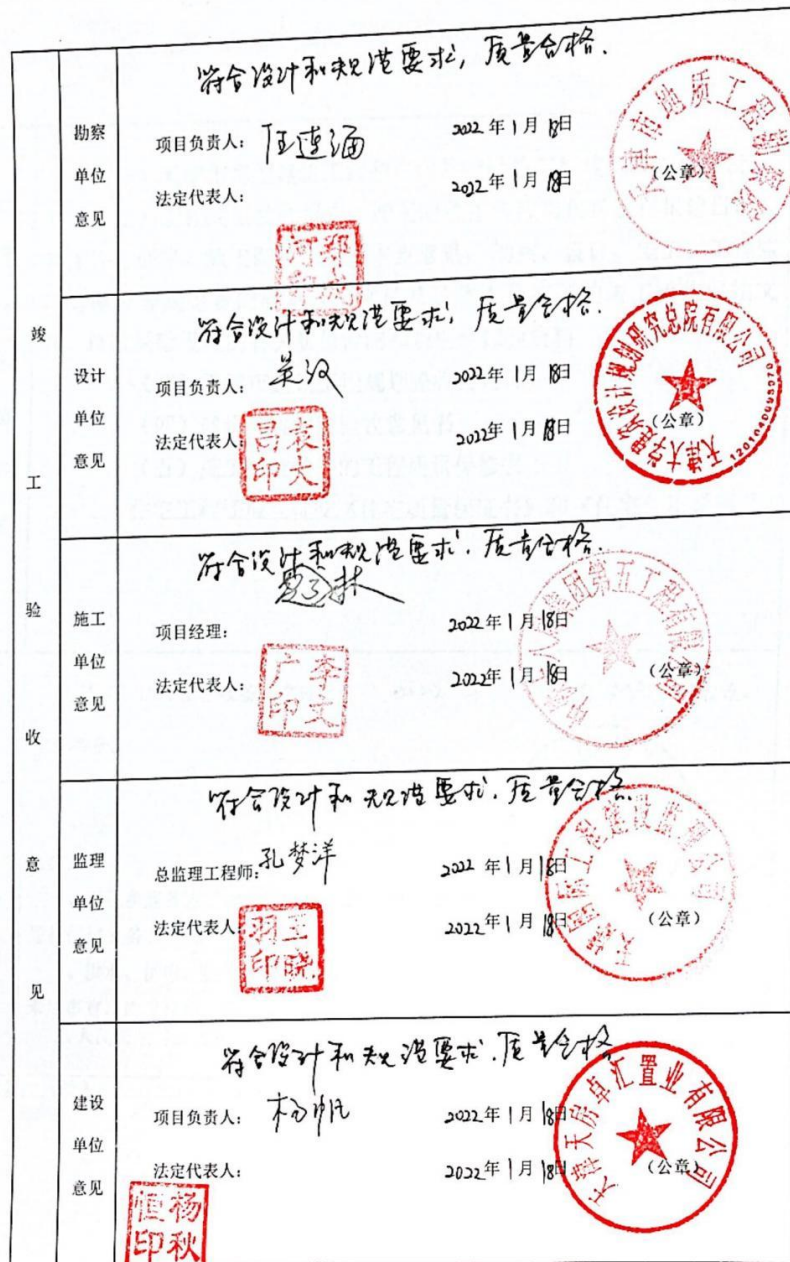 竣工验收意见
勘察单位意见
符合设计和规范要求，质量合格.
项目负责人：
2022年1月18日
法定代表人：
2022年1月18日
（公章）
天津市地质工程勘察院
郑成河印
设计单位意见
符合设计和规范要求，质量合格.
项目负责人：吴汉
2022年1月18日
法定代表人：
2022年1月18日
（公章）
天津大学建筑设计规划研究总院有限公司
袁大昌印
施工单位意见
符合设计和规范要求.质量合格.
项目经理：
2022年1月18日
法定代表人：
2022年1月18日
（公章）
集团第五工程有限公司
李文广印
监理单位意见
符合设计和规范要求.质量合格.
总监理工程师：孔梦洋
2022年1月18日
法定代表人：
2022年1月18日
（公章）
天津国际工程建设监理公司
王晓羽印
建设单位意见
符合设计和规范要求.质量合格
项目负责人：杨帆
2022年1月18日
法定代表人：
2022年1月18日
（公章）
天津天房卓汇置业有限公司
杨秋恒印